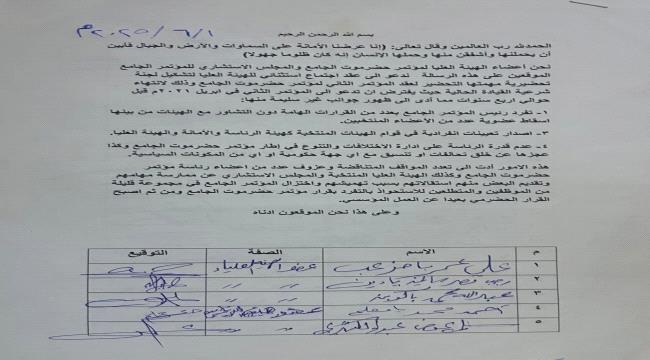 ٢٠٢٥/٦/١م
بسم الله الرحمن الرحيم
الحمدلله رب العالمين وقال تعالى: (إنا عرضنا الأمانة على السماوات والأرض والجبال فأبين
أن يحملنها وأشفقن منها وحملها الإنسان إنه كان ظلوما جهولا)
نحن أعضاء الهيئة العليا لمؤتمر حضرموت الجامع والمجلس الاستشاري للمؤتمر الجامع
الموقعين على هذه الرسالة ندعو الى عقد اجتماع استثنائي للهيئة العليا لتشكيل لجنة
تحضيرية مهمتها التحضير لعقد المؤتمر الثاني لمؤتمر حضرموت الجامع وذلك لانتهاء
شرعية القيادة الحالية حيث يفترض ان تدعو الى المؤتمر الثاني في ابريل ٢٠٢١م قبل
حوالي اربع سنوات مما أدى الى ظهور جوانب غير سليمة منها:
١- تفرد رئيس المؤتمر الجامع بعدد من القرارات الهامة دون التشاور مع الهيئات من بينها
اسقاط عضوية عدد من الأعضاء المنتخبين.
٣- اصدار تعيينات انفرادية في قوام الهيئات المنتخبة كهيئة الرئاسة والأمانة والهيئة العليا.
٤- عدم قدرة الرئاسة على ادارة الاختلافات والتنوع في إطار مؤتمر حضرموت الجامع وكذا
عجزها عن خلق تحالفات او تنسيق مع اي جهة حكومية او اي من المكونات السياسية.
هذه الامور ادت الى تعدد المواقف المتناقضة وعزوف عدد من اعضاء رئاسة مؤتمر
حضرموت الجامع وكذلك الهيئة العليا المنتخبة والمجلس الاستشاري عن ممارسة مهامهم
وتقديم البعض منهم استقالاتهم بسبب تهميشهم واختزال المؤتمر الجامع في مجموعة قليلة
من الموظفين والمتطلعين للاستحواذ بالتفرد بقرار مؤتمر حضرموت الجامع ومن ثم اصبح
القرار الحضرمي بعيدا عن العمل المؤسسي.
وعلى هذا نحن الموقعون ادناه
م الاسم الصفة التوقيع
١ علي عمر عضو الهيئة العليا
٢
٣
٤ احمد محمد عضو
٥